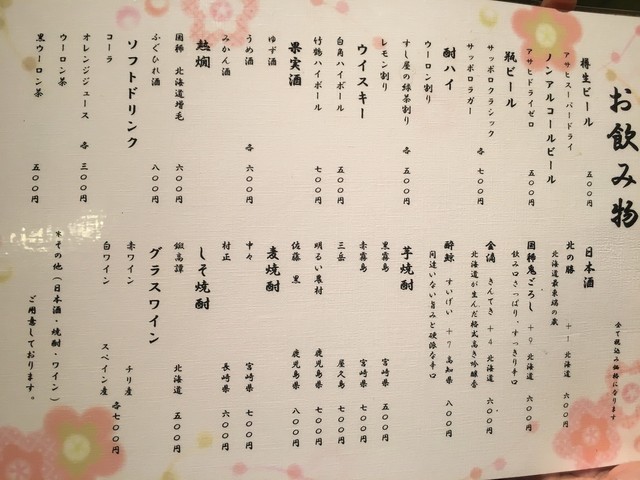 お飲み物
全て税込み価格になります
樽生ビール
アサヒスーパードライ 五〇〇円
ノンアルコールビール
アサヒドライゼロ 五〇〇円
瓶ビール
サッポロクラシック
サッポロラガー 各 七〇〇円
酎ハイ
ウーロン割り
すし屋の緑茶割り 各 五〇〇円
レモン割り
ウイスキー
白角ハイボール 五〇〇円
竹鶴ハイボール 七〇〇円
果実酒
ゆず酒
うめ酒 各 六〇〇円
みかん酒
熱燗
国稀 北海道増毛 六〇〇円
ふぐひれ酒 八〇〇円
ソフトドリンク
コーラ
オレンジジュース 各 三〇〇円
ウーロン茶
黒ウーロン茶 五〇〇円
日本酒
北の勝 +1 北海道 六〇〇円
北海道最東端の蔵
国稀鬼ごろし +9 北海道 六〇〇円
飲み口さっぱり、すっきり辛口
金滴 きんてき +4 北海道 六〇〇円
北海道が生んだ格式高き吟醸香
酔鯨 すいげい +7 高知県 八〇〇円
間違いない旨みと硬派な辛口
芋焼酎
黒霧島 宮崎県 五〇〇円
赤霧島 宮崎県 七〇〇円
三岳 屋久島 七〇〇円
明るい農村 鹿児島県 七〇〇円
佐藤 黒 鹿児島県 八〇〇円
麦焼酎
中々 宮崎県 七〇〇円
村正 長崎県 六〇〇円
しそ焼酎
鍛高譚 北海道 五〇〇円
グラスワイン
赤ワイン チリ産
白ワイン スペイン産 各七〇〇円
*その他（日本酒・焼酎・ワイン）
ご用意しております。